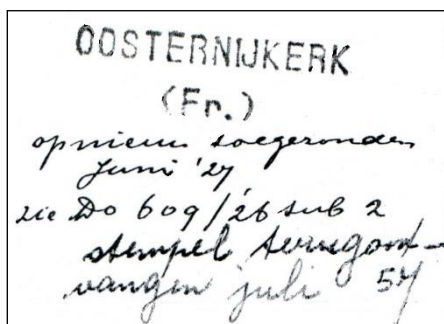 OOSTERNIJKERK
(Fr.)
opnieuw toegezonden
Juni '27
zie Do 609/26 sub 2
stempel terugont-
vangen juli 54